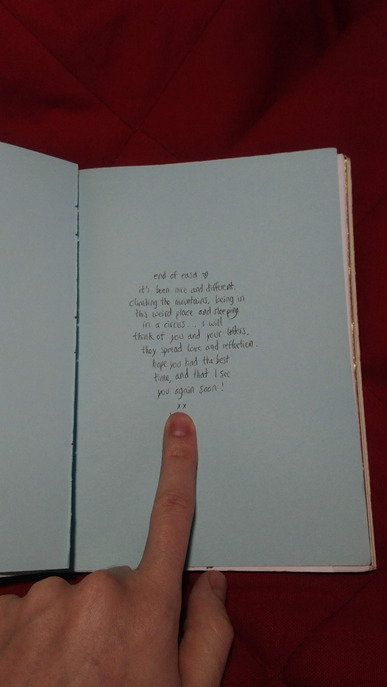 end of easa ♡
it's been nice and different.
climbing the mountains, being in
this weird place and sleeping
in a circus... I will
think of you and your letters.
they spread love and reflection.
hope you had the best
time, and that I see
you again soon!
xx